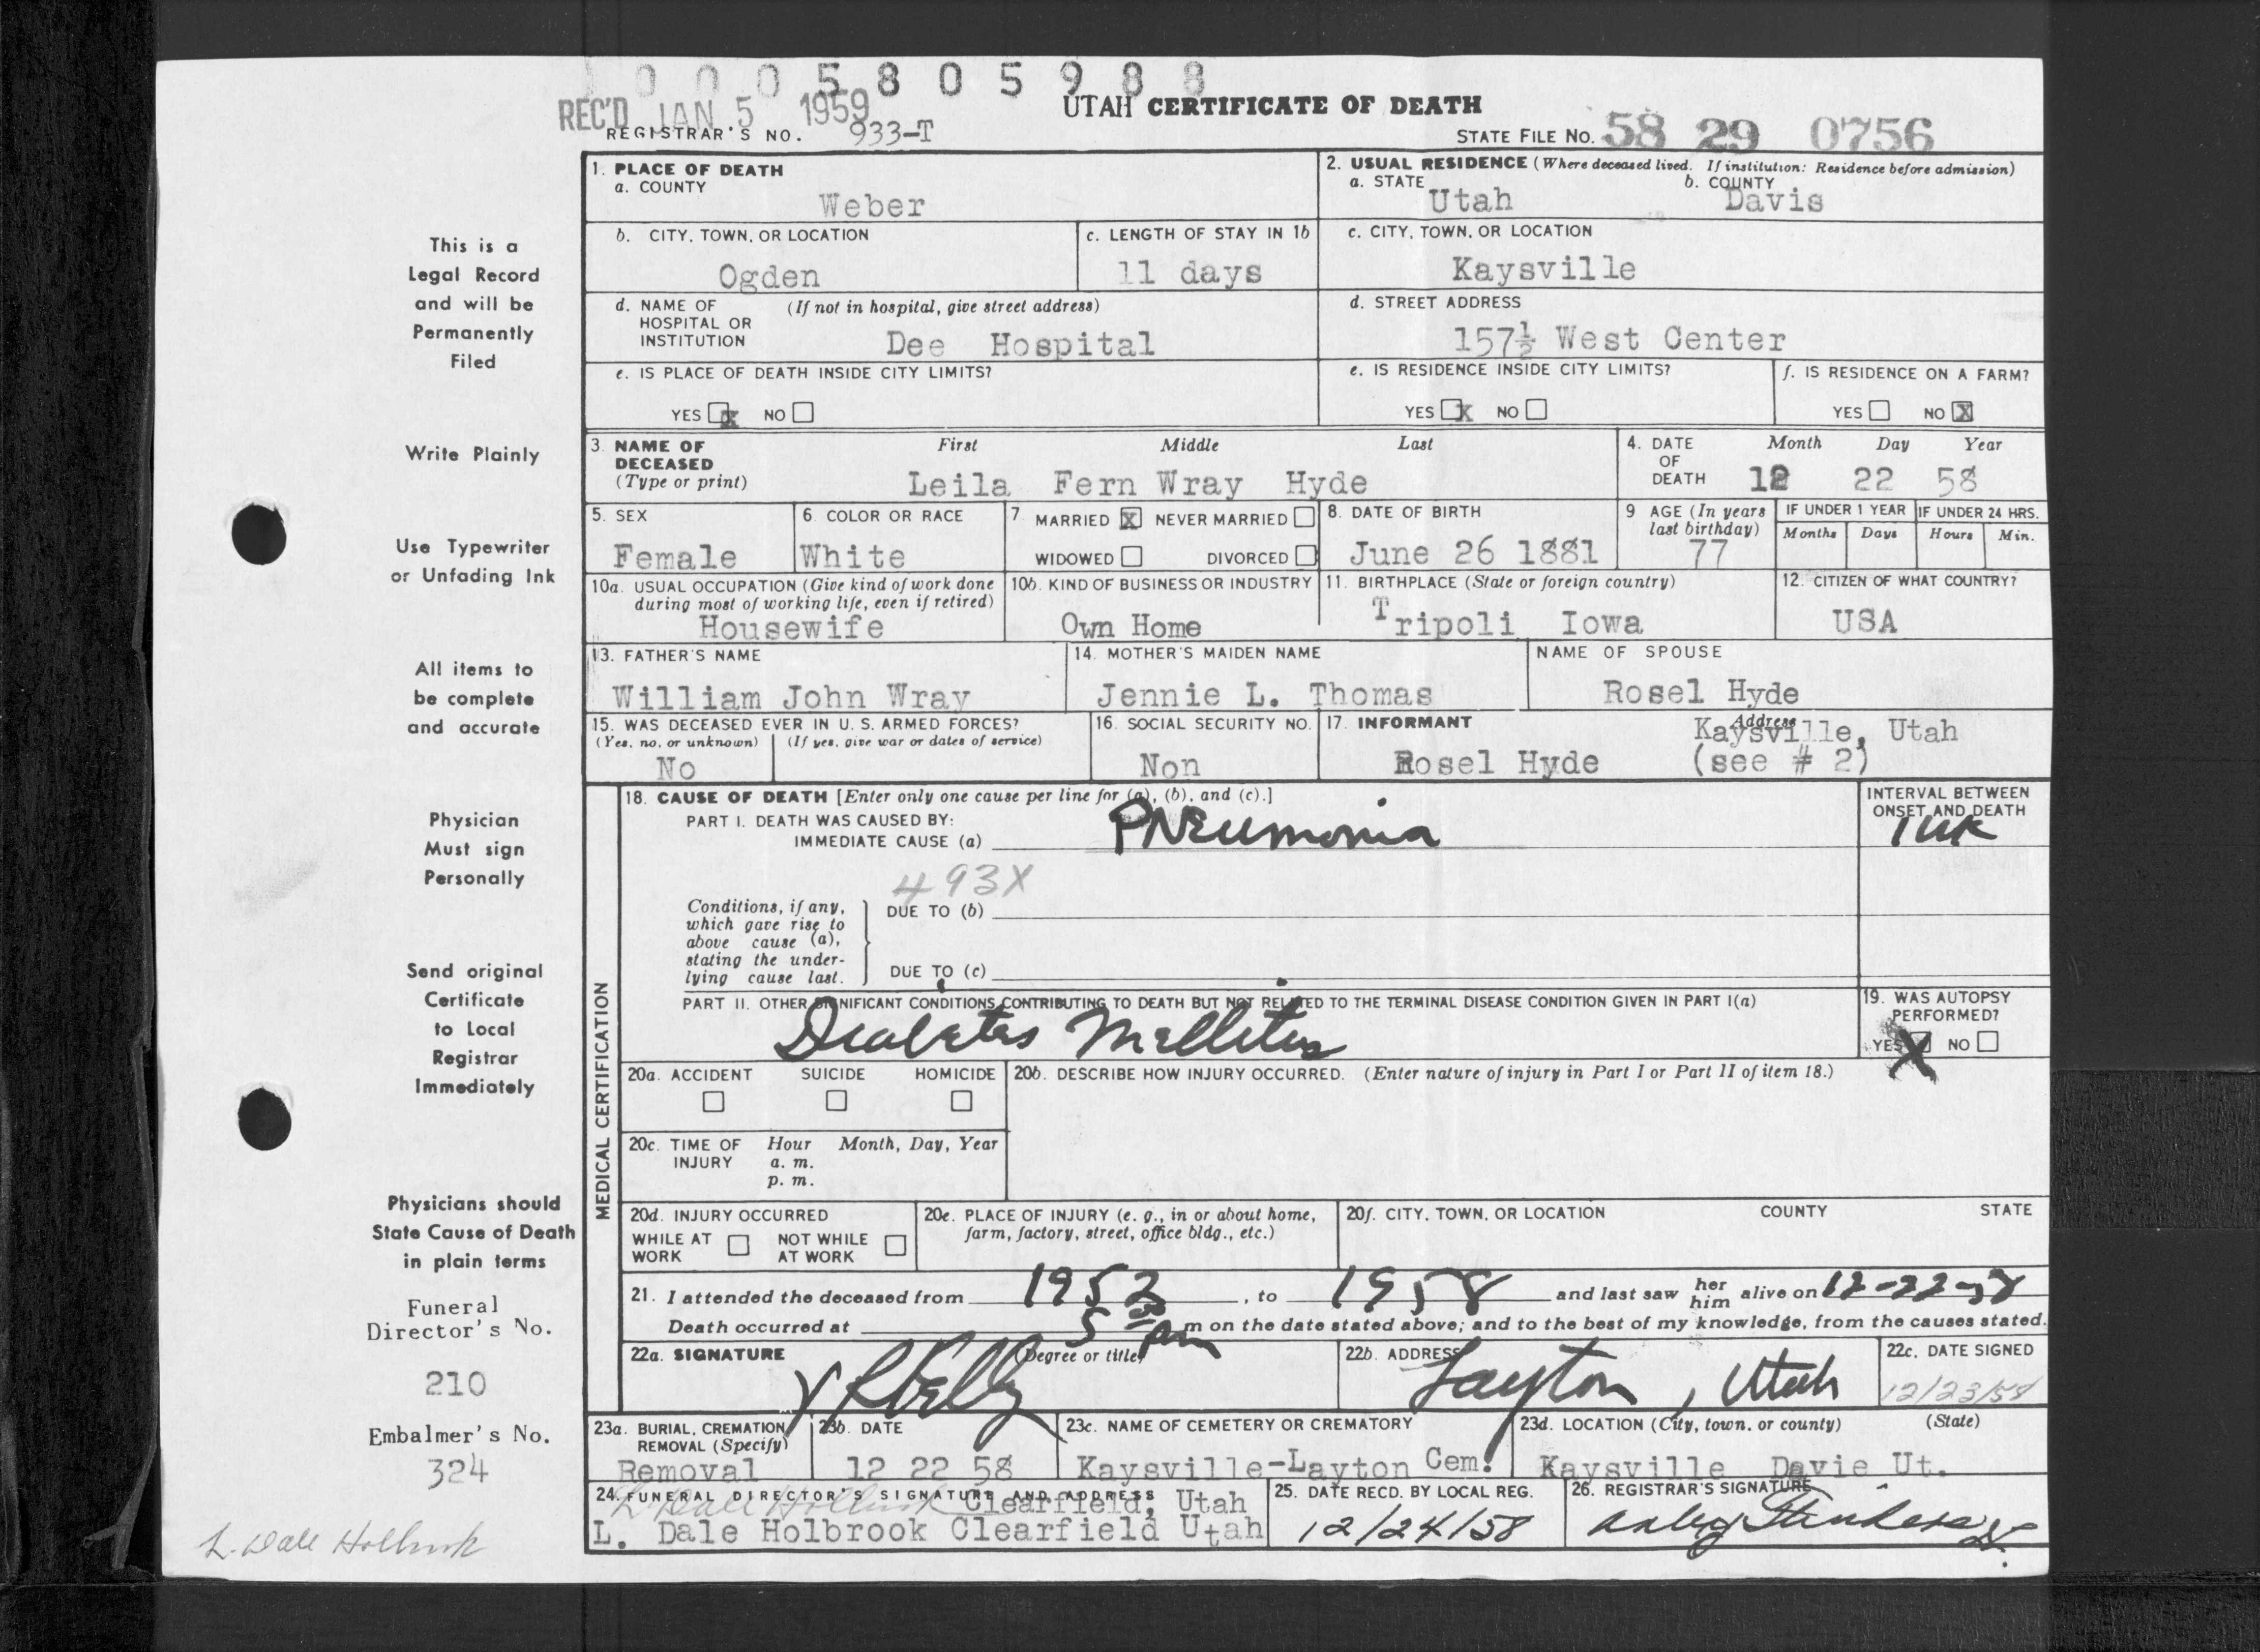 0 0 0 5 8 0 5 9 8 8
REC'D JAN 5 1959
UTAH CERTIFICATE OF DEATH
REGISTRAR'S NO. 933-T
STATE FILE NO. 58 29 0756
1. PLACE OF DEATH
a. COUNTY
Weber
2. USUAL RESIDENCE (Where deceased lived. If institution: Residence before admission)
a. STATE b. COUNTY
Utah Davis
b. CITY, TOWN, OR LOCATION
Ogden
c. LENGTH OF STAY IN 1b
11 days
c. CITY, TOWN, OR LOCATION
Kaysville
d. NAME OF (If not in hospital, give street address)
HOSPITAL OR
INSTITUTION
Dee Hospital
d. STREET ADDRESS
157½ West Center
e. IS PLACE OF DEATH INSIDE CITY LIMITS?
YES X NO
e. IS RESIDENCE INSIDE CITY LIMITS?
YES X NO
f. IS RESIDENCE ON A FARM?
YES NO X
3. NAME OF First Middle Last
DECEASED
(Type or print)
Leila Fern Wray Hyde
4. DATE Month Day Year
OF
DEATH 12 22 58
5. SEX
Female
6. COLOR OR RACE
White
7. MARRIED X NEVER MARRIED
WIDOWED DIVORCED
8. DATE OF BIRTH
June 26 1881
9 AGE (In years
last birthday)
77
IF UNDER 1 YEAR
Months Days
IF UNDER 24 HRS.
Hours Min.
10a. USUAL OCCUPATION (Give kind of work done
during most of working life, even if retired)
Housewife
10b. KIND OF BUSINESS OR INDUSTRY
Own Home
11. BIRTHPLACE (State or foreign country)
Tripoli Iowa
12. CITIZEN OF WHAT COUNTRY?
USA
13. FATHER'S NAME
William John Wray
14. MOTHER'S MAIDEN NAME
Jennie L. Thomas
NAME OF SPOUSE
Rosel Hyde
15. WAS DECEASED EVER IN U. S. ARMED FORCES?
(Yes, no, or unknown) (If yes, give war or dates of service)
No
16. SOCIAL SECURITY NO.
Non
17. INFORMANT Address
Kaysville, Utah
Rosel Hyde (see # 2)
MEDICAL CERTIFICATION
18. CAUSE OF DEATH [Enter only one cause per line for (a), (b), and (c).]
PART I. DEATH WAS CAUSED BY:
IMMEDIATE CAUSE (a) PNEumonia
INTERVAL BETWEEN
ONSET AND DEATH
1 wk
493X
Conditions, if any,
which gave rise to
above cause (a),
stating the under-
lying cause last.
DUE TO (b)
DUE TO (c)
PART II. OTHER SIGNIFICANT CONDITIONS CONTRIBUTING TO DEATH BUT NOT RELATED TO THE TERMINAL DISEASE CONDITION GIVEN IN PART I(a)
Diabetes Mellitus
19. WAS AUTOPSY
PERFORMED?
YES X NO
20a. ACCIDENT SUICIDE HOMICIDE
20b. DESCRIBE HOW INJURY OCCURRED. (Enter nature of injury in Part I or Part II of item 18.)
20c. TIME OF Hour Month, Day, Year
INJURY a. m.
p. m.
20d. INJURY OCCURRED
WHILE AT NOT WHILE
WORK AT WORK
20e. PLACE OF INJURY (e. g., in or about home,
farm, factory, street, office bldg., etc.)
20f. CITY, TOWN, OR LOCATION COUNTY STATE
21. I attended the deceased from 1952, to 1958 and last saw her him alive on 12-22-58
Death occurred at 5 00 pm m on the date stated above; and to the best of my knowledge, from the causes stated.
22a. SIGNATURE (Degree or title)
22b. ADDRESS
Layton, Utah
22c. DATE SIGNED
12/23/58
23a. BURIAL, CREMATION,
REMOVAL (Specify)
Removal
23b. DATE
12 22 58
23c. NAME OF CEMETERY OR CREMATORY
Kaysville-Layton Cem.
23d. LOCATION (City, town, or county) (State)
Kaysville Davie Ut.
24. FUNERAL DIRECTOR'S SIGNATURE AND ADDRESS
L Dale Holbrook Clearfield, Utah
L. Dale Holbrook Clearfield Utah
25. DATE RECD. BY LOCAL REG.
12/24/58
26. REGISTRAR'S SIGNATURE
This is a
Legal Record
and will be
Permanently
Filed
Write Plainly
Use Typewriter
or Unfading Ink
All items to
be complete
and accurate
Physician
Must sign
Personally
Send original
Certificate
to Local
Registrar
Immediately
Physicians should
State Cause of Death
in plain terms
Funeral
Director's No.
210
Embalmer's No.
324
L. Dale Holbrook